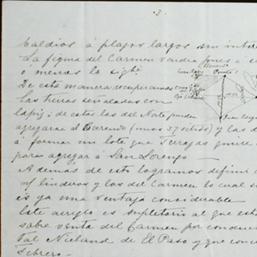 3.
baldíos á plazos largos sin
La figura del Carmen vendra
ó menos la sigte.
De esta manera recuperamos
las tierras señaladas con
lapiz; de estas las del Norte pueden
agregarse al Barrendo (unos 37 sitios) y las
á formar un lote que Terrazas quiere
para agregar a San Lorenzo.
Ademas de esto logramos definir
linderos y los del Carmen lo cual
es ya una ventaja considerable
Este arreglo es
sobre venta del Carmen por
Tal Nieland de El Paso y que
Febrero.